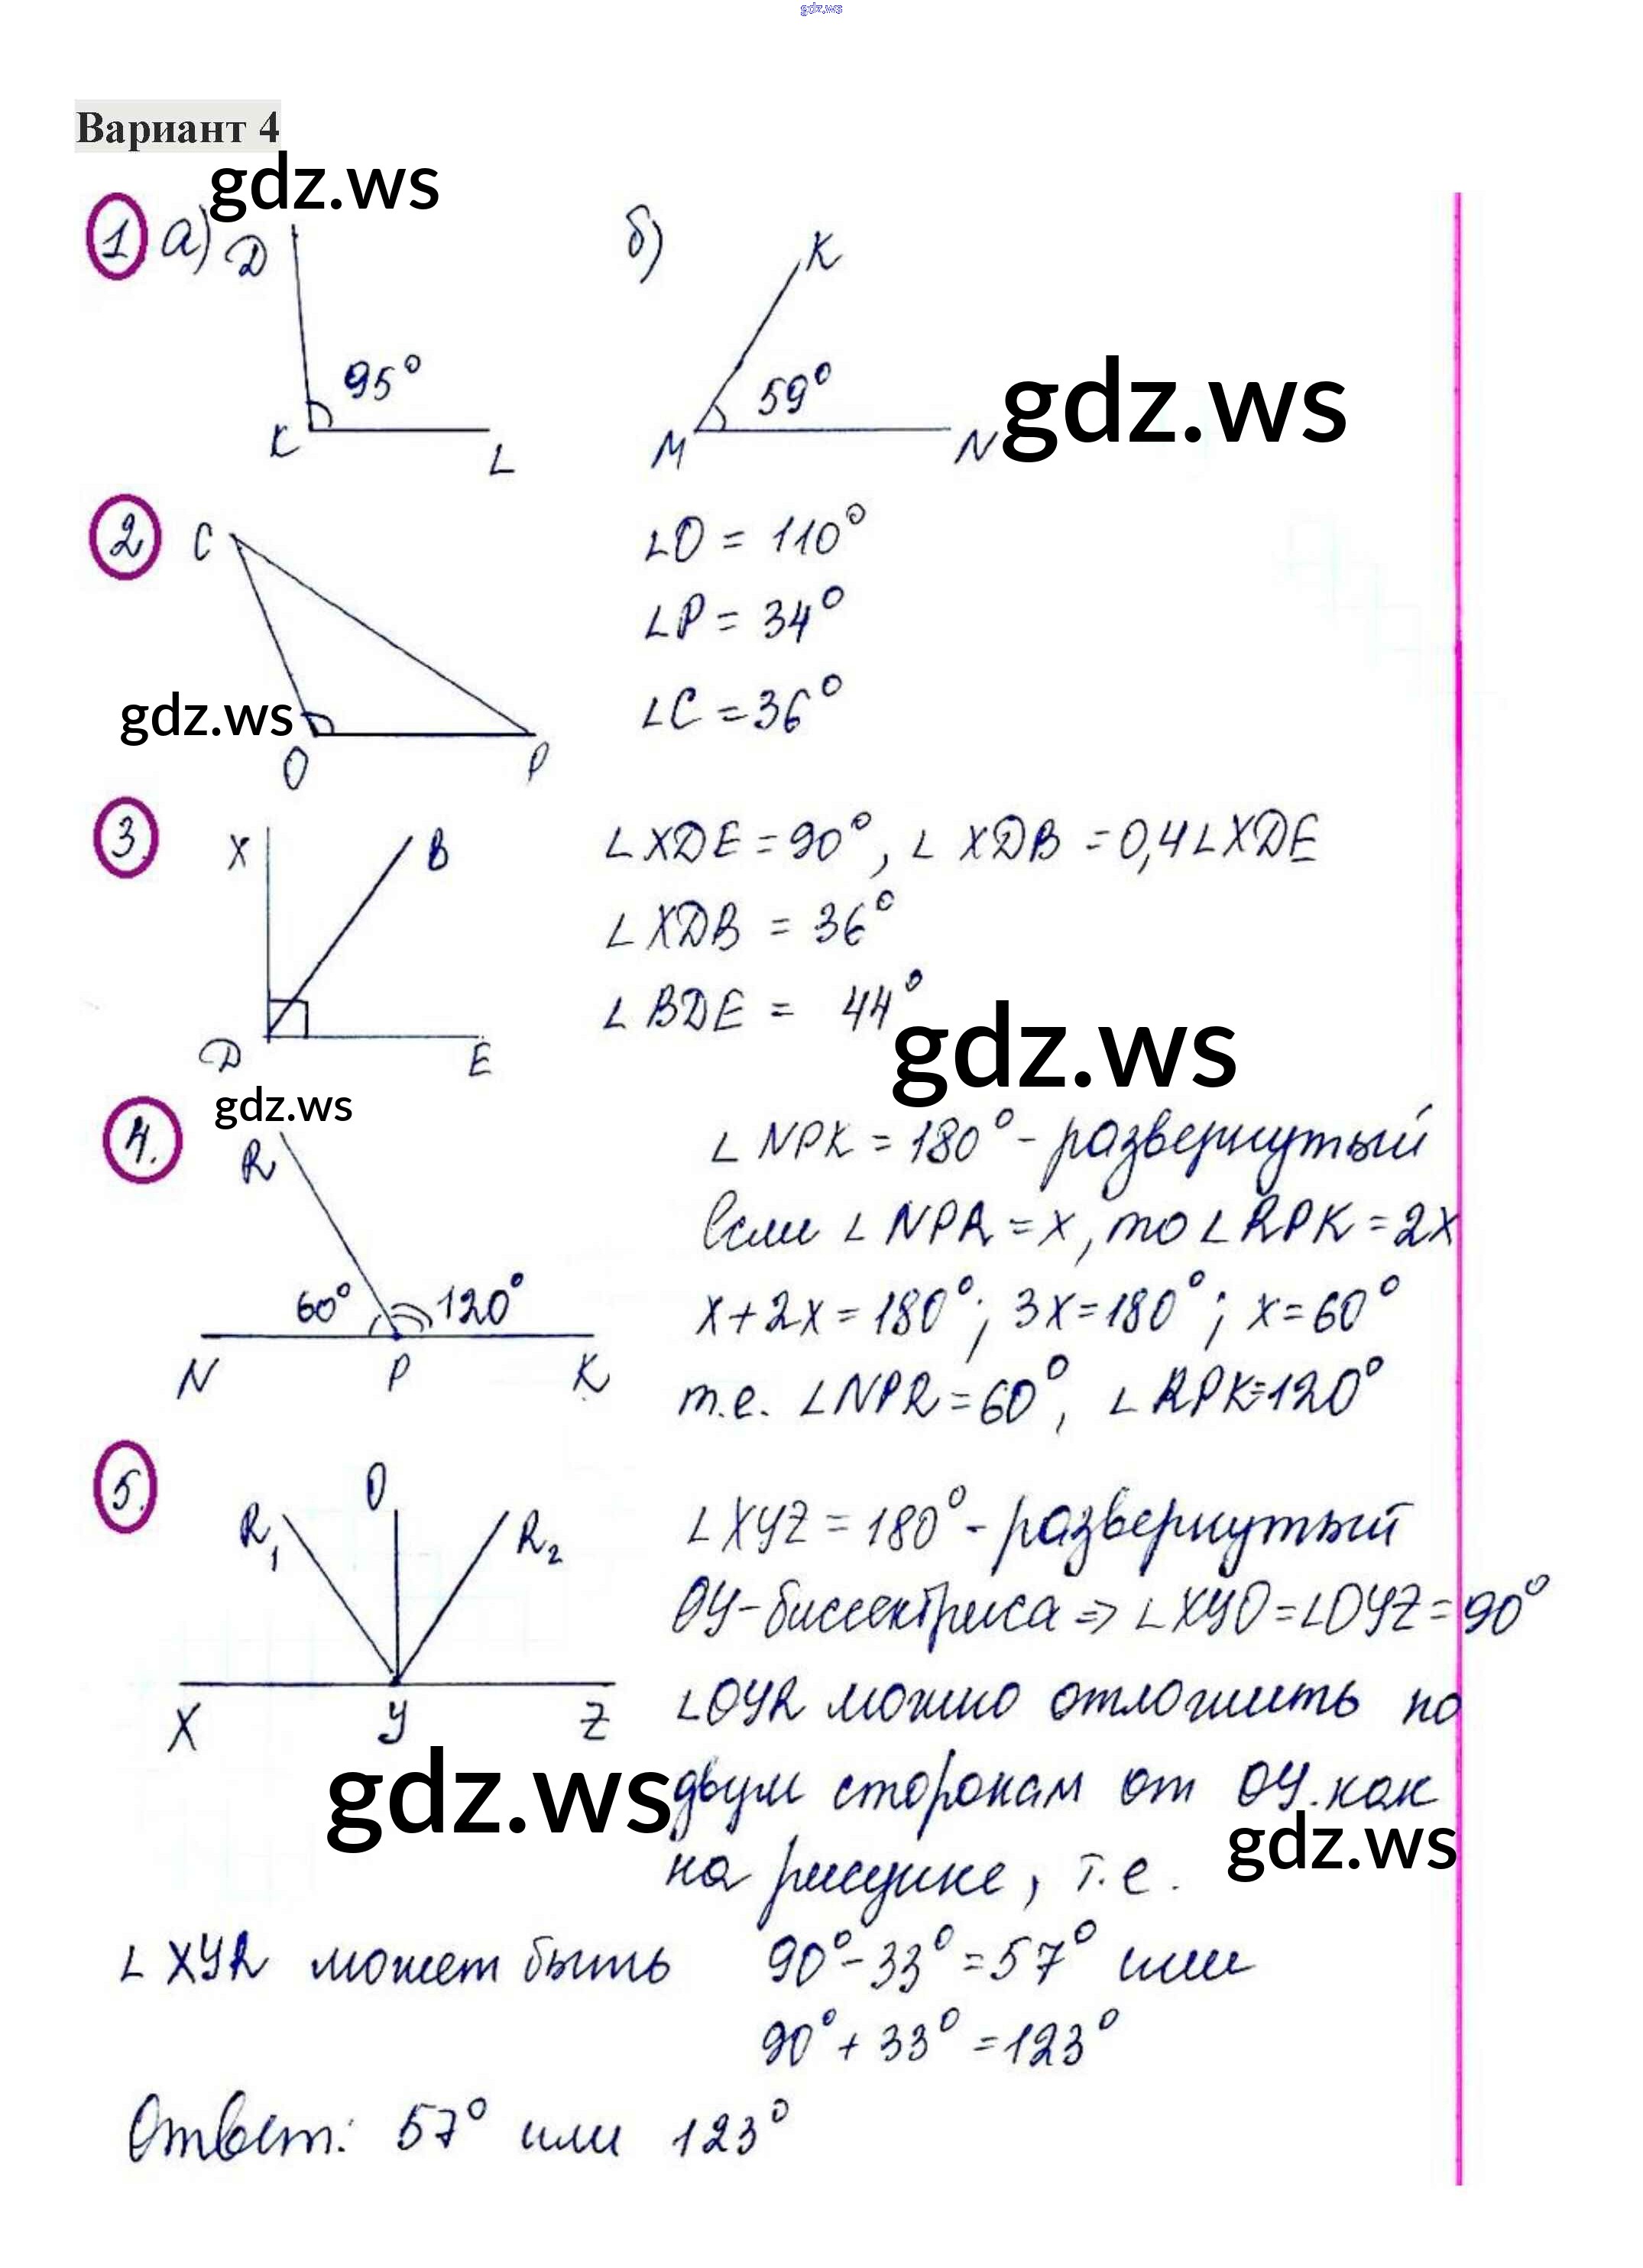 gdz.ws
Вариант 4
gdz.ws
1 а) D
95°
K
L
б)
K
59°
M
N
gdz.ws
2 C
O
P
∠O = 110°
∠P = 34°
∠C = 36°
gdz.ws
3. X
B
D
E
∠XDE = 90°, ∠XDB = 0,4∠XDE
∠XDB = 36°
∠BDE = 44°
gdz.ws
gdz.ws
4. R
60°
120°
N
P
K
∠NPK = 180° - развернутый
если ∠NPR = x, то ∠RPK = 2x
x+2x = 180°; 3x = 180°; x = 60°
т.е. ∠NPR = 60°, ∠RPK = 120°
5. R1
O
R2
X
Y
Z
∠XYZ = 180° - развернутый
OY - биссектриса => ∠XYO = ∠OYZ = 90°
∠OYR можно отложить по
двум сторонам от OY. как
gdz.ws
gdz.ws
на рисунке, т.е.
∠XYR может быть 90° - 33° = 57° или
90° + 33° = 123°
Ответ: 57° или 123°